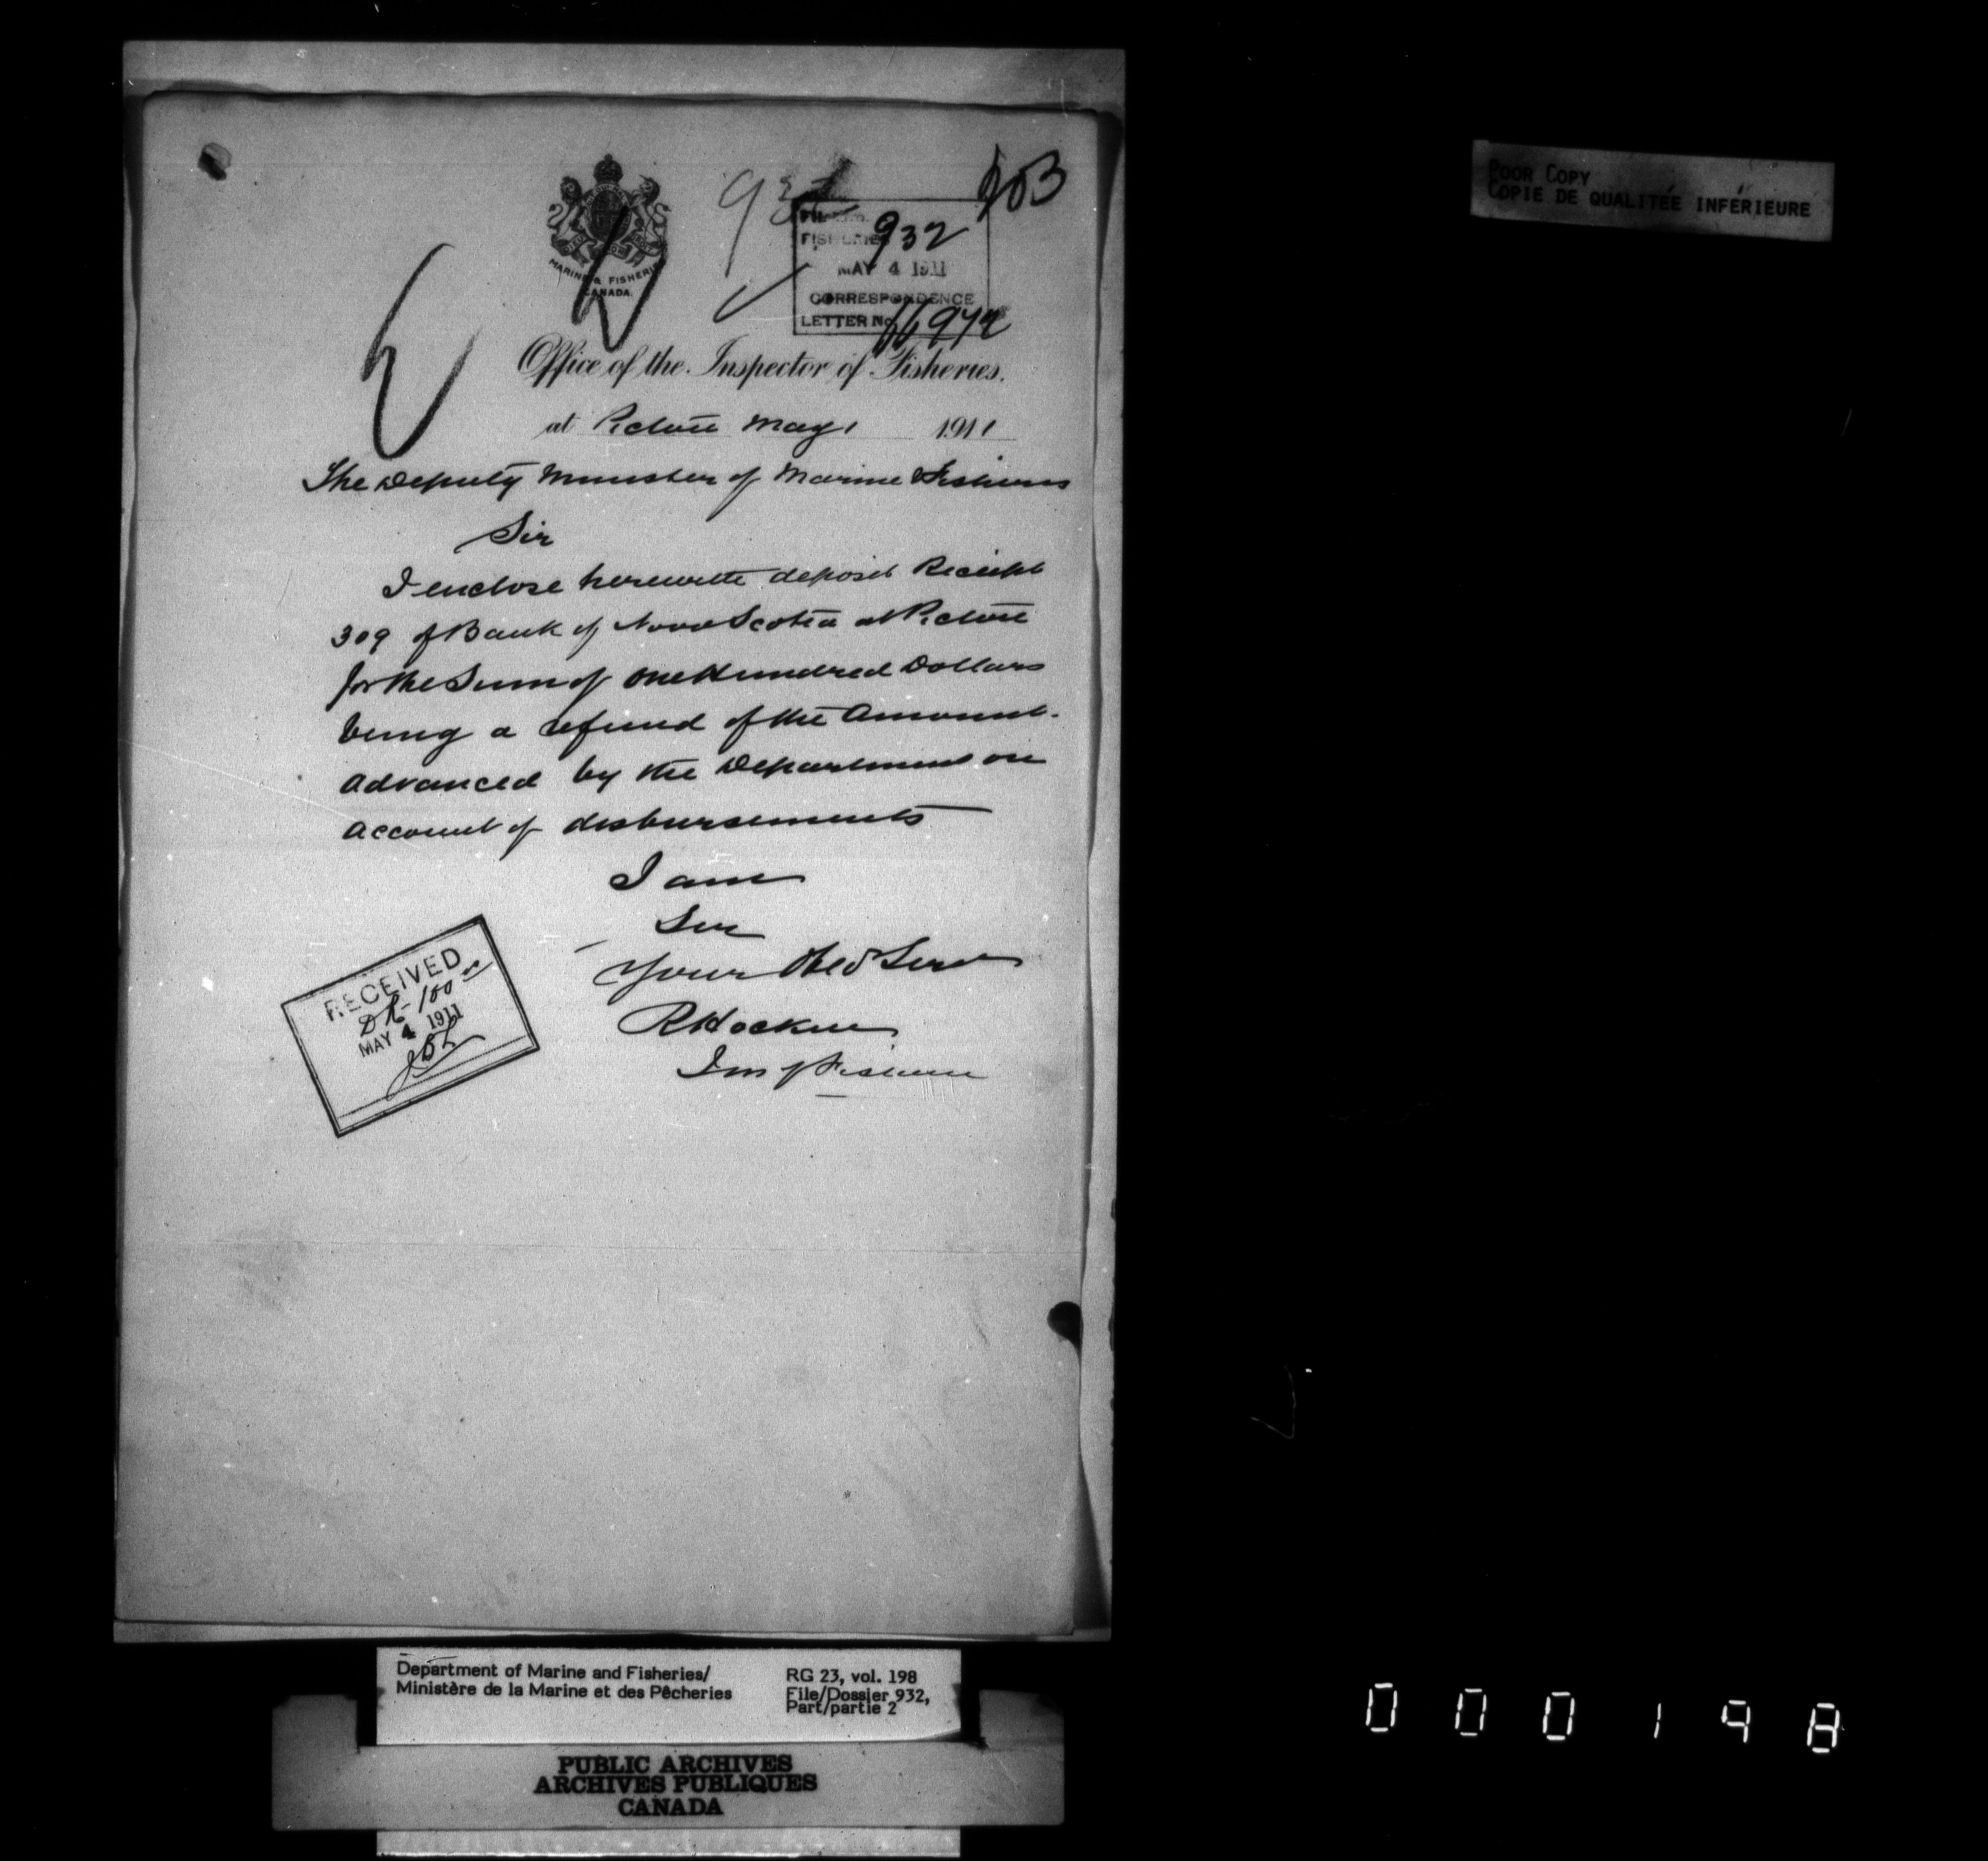 POOR COPY
COPIE DE QUALITÉE INFÉRIEURE
203
932
FISHERIES 932
MAY 4 1911
CORRESPONDENCE
LETTER No
MARINE & FISHERIES
CANADA.
Office of the Inspector of Fisheries.
at Pictou May 1 1911
The Deputy Minister of Marine & Fisheries
Sir
I enclose herewith deposit Receipt
309 of Bank of Nova Scotia at Pictou
for the Sum of One Hundred Dollars
being a refund of the Amount
advanced by the Department on
account of disbursements
I am
Sir
Your Obed Serv
R Hockin
Ins of Fisheries
RECEIVED
DR- 100
MAY 4 1911
Department of Marine and Fisheries/
Ministère de la Marine et des Pêcheries
RG 23, vol. 198
File/Dossier 932,
Part/partie 2
PUBLIC ARCHIVES
ARCHIVES PUBLIQUES
CANADA
000198